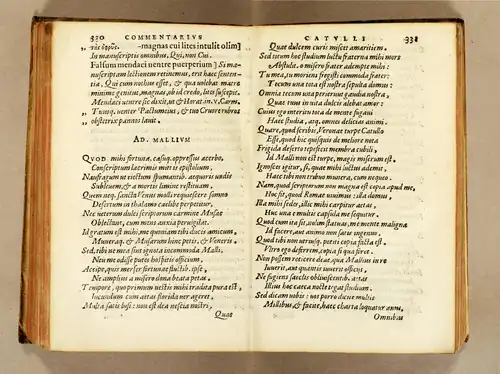 330 COMMENTARIVS
magnas cui lites intulit olim]
In manuscriptis omnibus, Qui, non Cui.
Fulsum mendaci ventre puerperium] Si ma-
nuscriptam lectionem retinemus, erit haec senten-
tia. Qui cum nollem esset, & qua volebat
minime genitus, magnas, ab id credo, lites suscepit.
Mendaci ventre sic dixit, ut & Horat. in v. Carm.
„ Tuusq. venter Pactumeius, & tuo Cruore rubros
„ obstetrix pannos lauit.
AD. MALLIVM
QVOD mihi fortuna, casuq. oppressus acerbo,
Conscriptum lacrimis mittis epistolium,
Naufragum ut eiectum spumantib. aequoris undis
Subleuem, & a mortis limine restituam,
Quem neq. sancta Venus molli requiescere somno
Desertum in thalamo caelibe perpetitur,
Nec veterum dulci scriptorum carmine Musae
Oblectant, cum mens anxia peruigilat.
Id gratum est mihi, me quoniam tibi ducis amicum,
Muneraq. & Musarum hinc petis, & Veneris.
Sed, tibi ne mea sint ignota incommoda Malli,
Neu me odisse putes hospitis officium,
Accipe, quis merser fortunae fluctib. ipse,
Ne amplius a misero dona beata petas.
Tempore, quo primum vestis mihi tradita pura est,
Iucundum cum aetas florida ver ageret,
Multa satis lusi: non est dea nescia nostri,
Quae
CATVLLI 331
Quae dulcem curis miscet amaritiem.
Sed totum hoc studium luctu fraterna mihi mors
Abstulit. o misero frater adempte mihi:
Tu mea, tu moriens fregisti commoda frater:
Tecum una tota est nostra sepulta domus:
Omnia tecum una perierunt gaudia nostra,
Quae tuus in vita dulcis alebat amor:
Cuius ego interitu tota de mente fugaui
Haec studia, atq. omnes delicias animi.
Quare, quod scribis, Veronae turpe Catullo
Esse, quod hic quisquis de meliore nota
Frigida deserto tepefecit membra cubili,
Id Malli non est turpe, magis miserum est.
Ignosces igitur, si, quae mihi luctus ademit
Haec tibi non tribuo munera, cum nequeo.
Nam, quod scriptorum non magna est copia apud me,
Hoc fit, quod Romae uiuimus: illa domus,
Illa mihi sedes, illic mihi carpitur aetas,
Huc una e multis capsula me sequitur.
Quod cum ita sit, nolim statuas, me mente maligna
Id facere, aut animo non satis ingenuo,
Quod tibi non utriusq. petiti copia facta est.
Vltro ego deferrem, copia si qua foret.
Non possum reticere deae, qua Mallius in re
Iuuerit, aut quantis iuuerit officiis,
Ne fugiens saeclis obliuiscentib. aetas
Illius hoc caeca nocte tegat studium.
Sed dicam uobis: uos porro dicite multis
Millibus, & facite, haec charta loquatur anus,
Omnibus